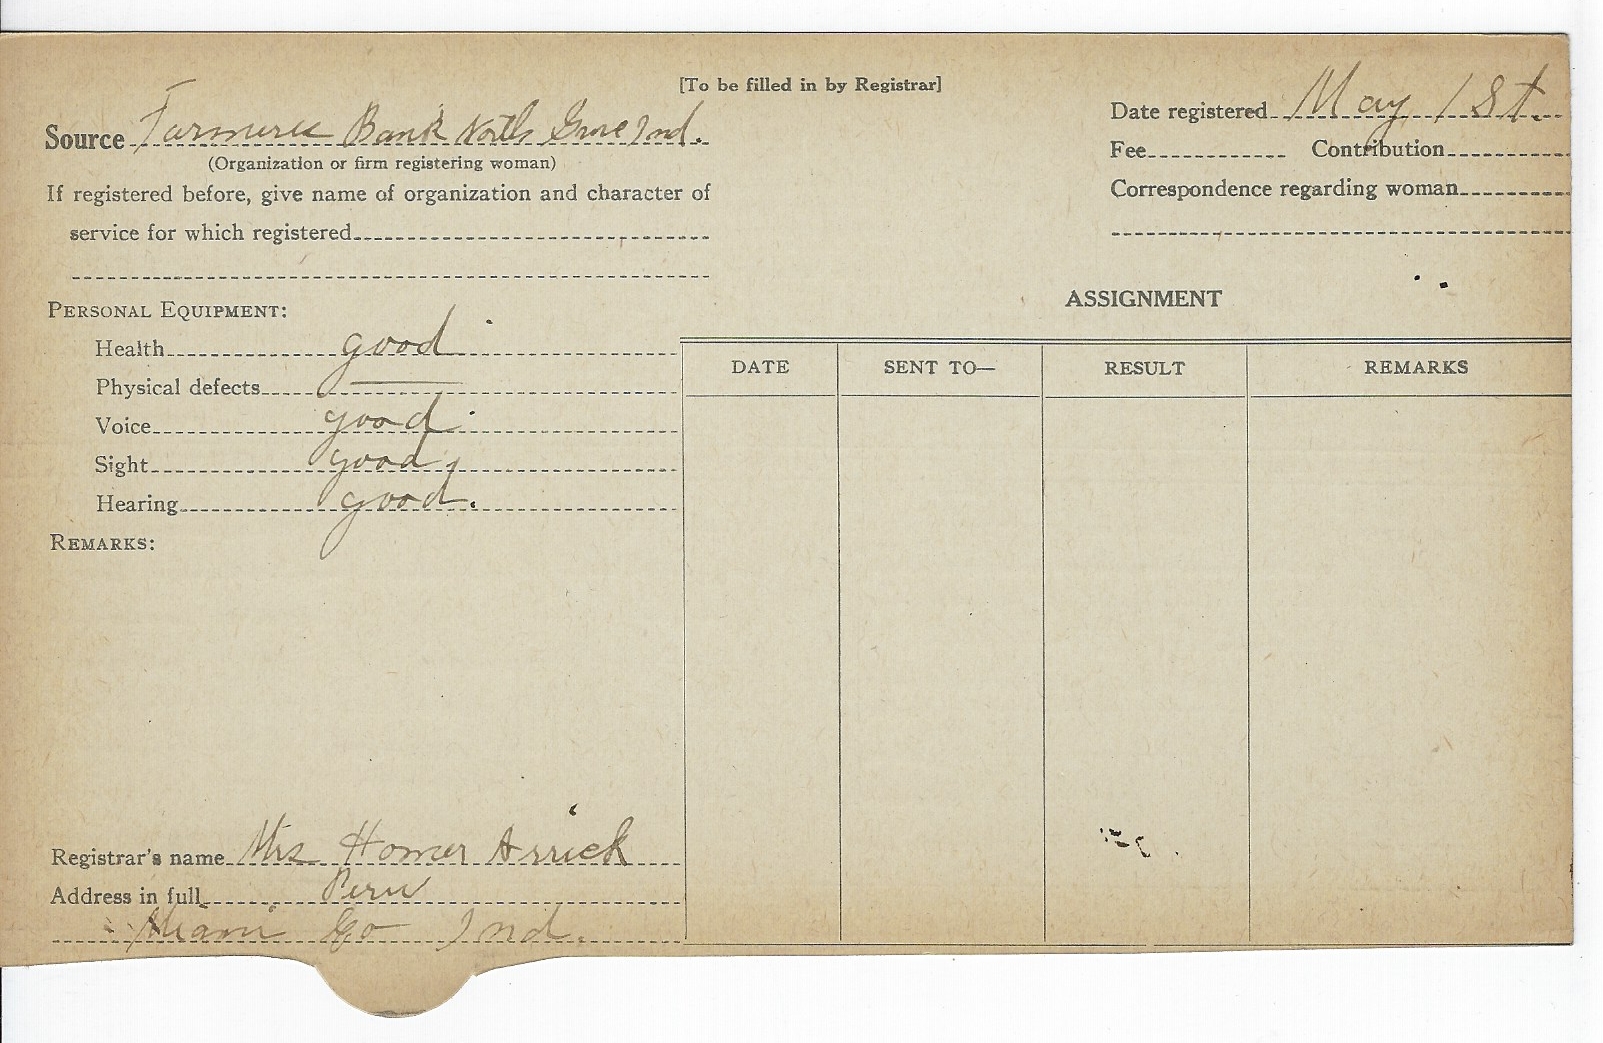 [To be filled in by Registrar]
Source Farmers Bank North Grove Ind.
(Organization or firm registering woman)
If registered before, give name of organization and character of
service for which registered
PERSONAL EQUIPMENT:
Health good
Physical defects
Voice good
Sight good
Hearing good.
REMARKS:
Registrar's name Mrs Homer Arrick
Address in full Peru
Miami Co Ind.
Date registered May 1st.
Fee Contribution
Correspondence regarding woman
ASSIGNMENT
DATE SENT TO— RESULT REMARKS